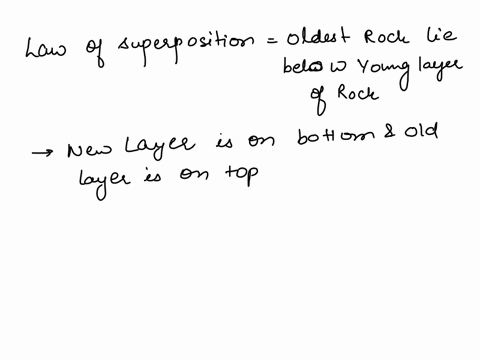 Law of superposition = oldest Rock lie
below Young layer
of Rock
→ New Layer is on bottom & old
layer is on top